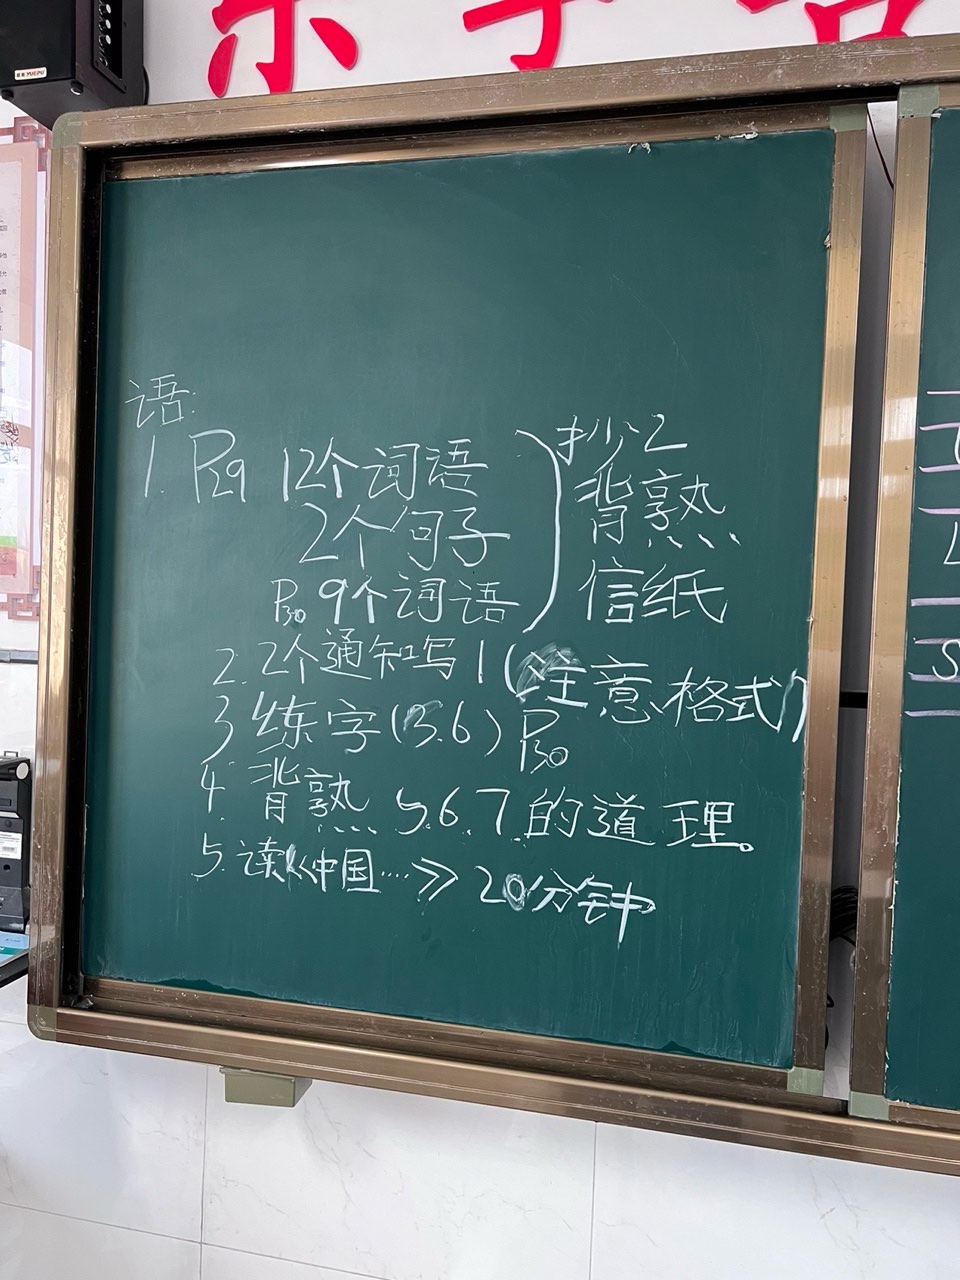 语:
1. P29 12个词语
2个句子
P30 9个词语
抄2
背熟
信纸
2. 2个通知写1(注意格式)
3 练字(5.6) P30
4. 背熟 5.6.7.的道理。
5. 读《中国····》 20分钟